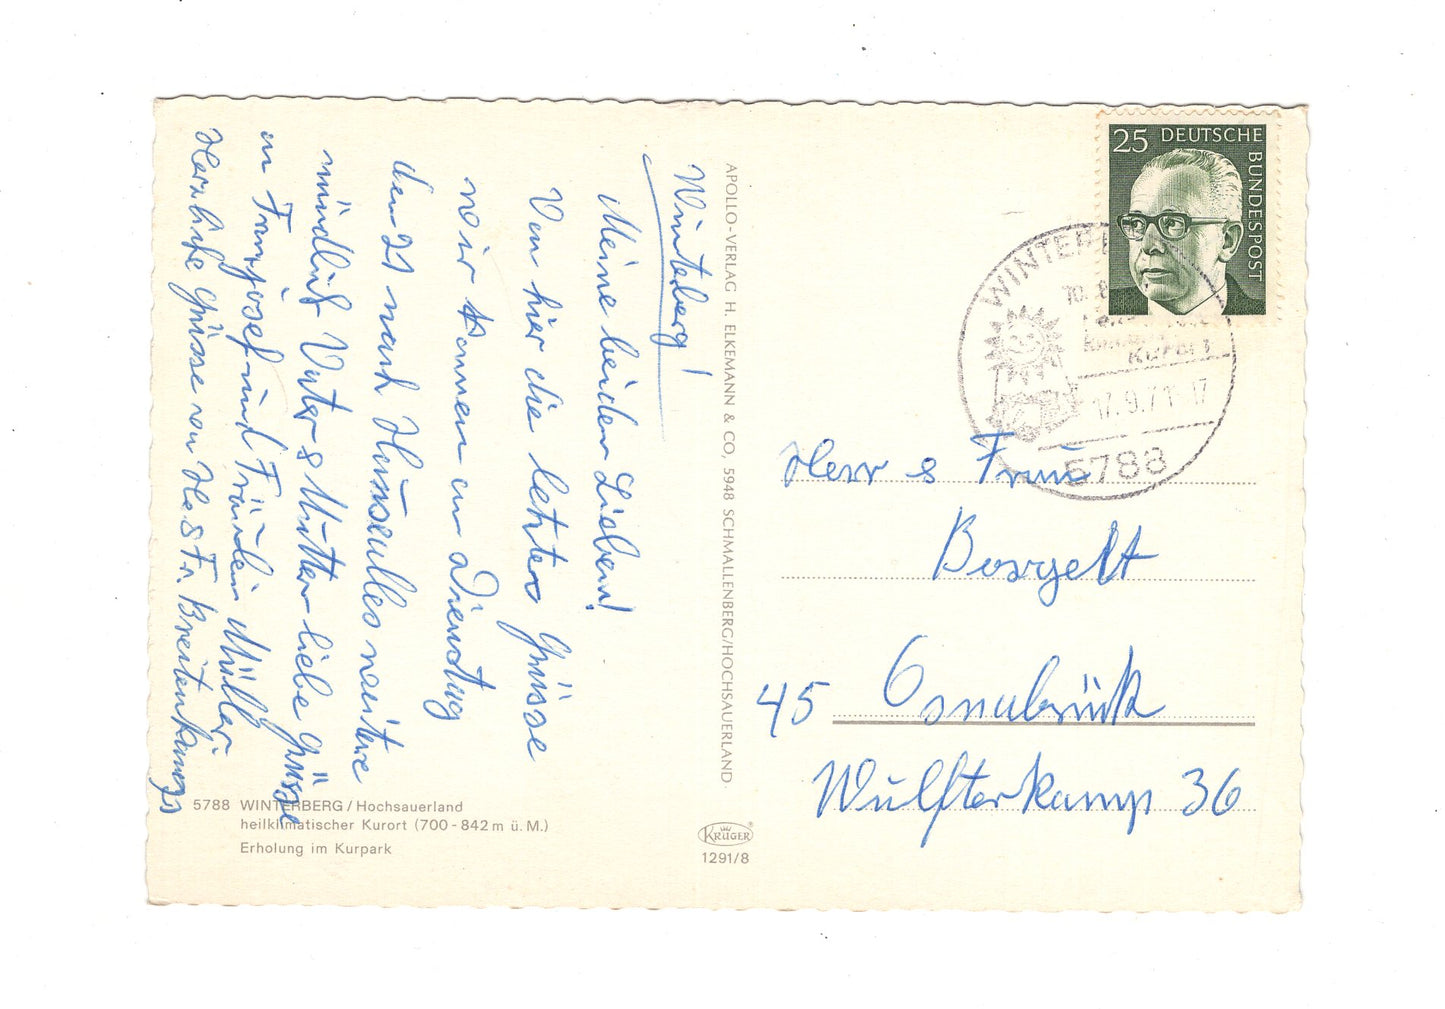 Winterberg!
Meine beiden Lieben!
Von hier die letzten Grüsse
wir kommen am Dienstag
den 21 nach Hause alles weitere
mündlich Vater & Mutter liebe Grüsse
an Franzjosef und Fräulein Müller.
Herzliche Grüsse von He. & Fr. Breitenkamp
5788 WINTERBERG / Hochsauerland
heilklimatischer Kurort (700 - 842 m ü. M.)
Erholung im Kurpark
APOLLO-VERLAG H. ELKEMANN & CO, 5948 SCHMALLENBERG/HOCHSAUERLAND
KRÜGER
1291/8
25 DEUTSCHE
BUNDESPOST
WINTER
Kurort
17.9.71-17
5788
Herr & Frau
Borgelt
45 Osnabrück
Wulfterkamp 36